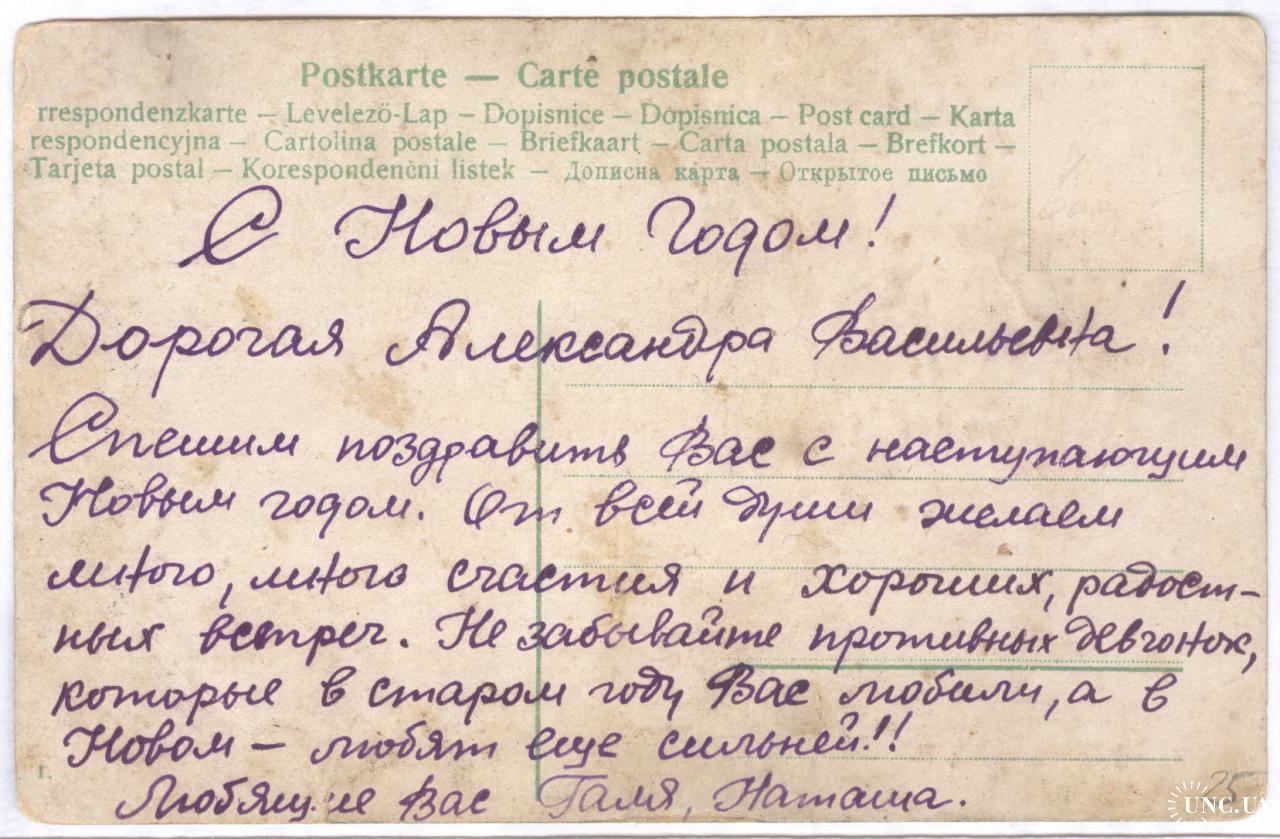 Postkarte — Carte postale
rrespondenzkarte — Levelező-Lap — Dopisnice — Dopisnica — Post card — Karta
respondencyjna — Cartolina postale — Briefkaart — Carta postala — Brefkort —
Tarjeta postal — Korespondenční listek — Дописна карта — Открытое письмо
С Новым Годом!
Дорогая Александра Васильевна!
Спешим поздравить Вас с наступающим
Новым годом. От всей души желаем
много, много счастия и хороших, радост-
ных встреч. Не забывайте противных девчонок,
которые в старом году Вас любили, а в
Новом — любят еще сильней!!
Любящие Вас Галя, Наташа.
25
UNC.UA